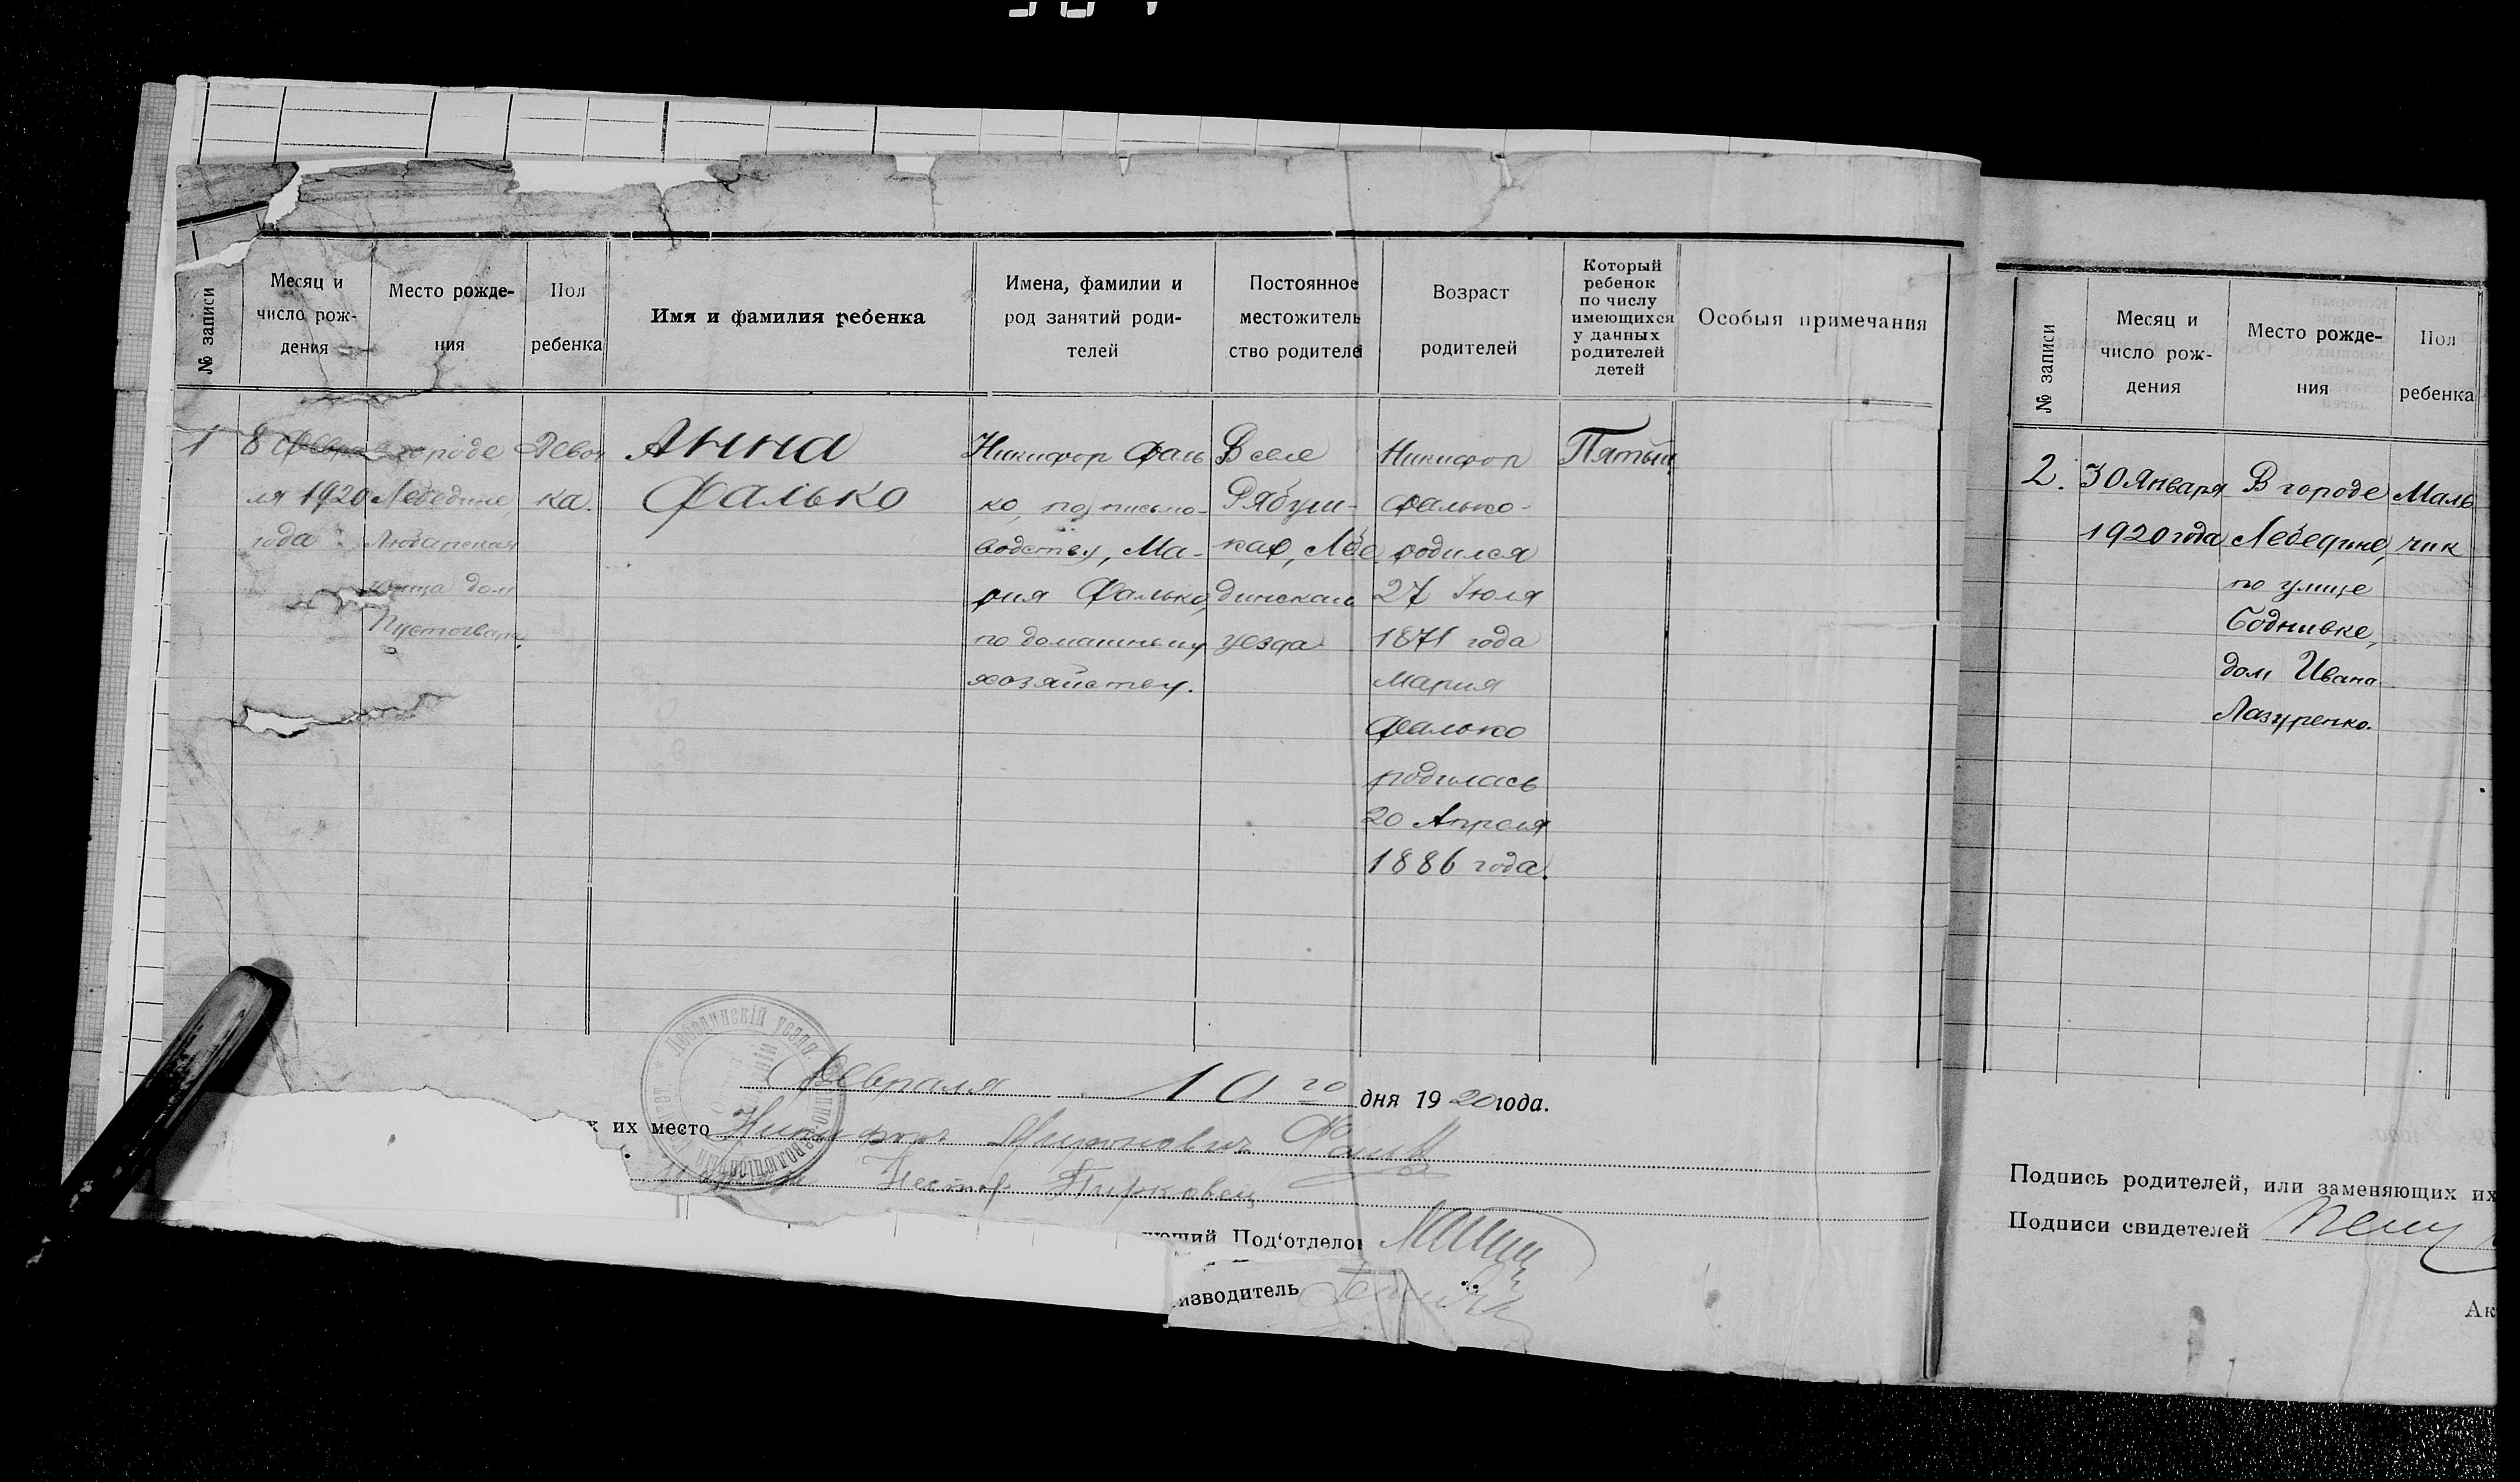 № записи
Месяц и
число рож-
дения
Место рожде-
ния
Пол
ребенка
Имя и фамилия ребенка
Имена, фамилии и
род занятий роди-
телей
Постоянное
местожитель
ство родителе
Возраст
родителей
Который
ребенок
по числу
имеющихся
у данных
родителей
детей
Особыя примечания
1
8 Февра
ля 1920
года
городе
Лебедине,
улица дом
Девоч
ка.
Анна
Фалько
Никифор Фаль
ко, по письмо-
водству, Ма-
рия Фалько,
по домашнему
хозяйству.
В селе
Рябуш-
ках, Лебе
динскаго
уезда
Никифор
Фалько
родился
27 Июля
1871 года
Мария
Фалько
родилась
20 Апреля
1886 года.
Пятый
Февраля 10 го дня 1920 года.
х их место Никифор Фальк
Нестор
ющий Под'отдело
изводитель
№ записи
Месяц и
число рож-
дения
Место рожде-
ния
Пол
ребенка
2.
30 Января
1920 года
В городе
Лебедине,
по улице
дом Ивана
Лазуренко.
Маль
чик
Подпись родителей, или заменяющих их
Подписи свидетелей
Ак